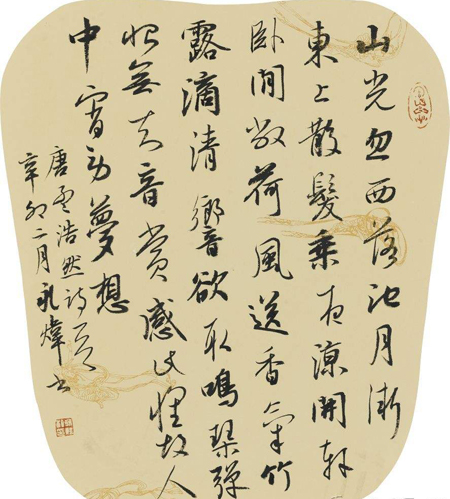 山光忽西落池月漸
東上散髮乘夜涼開軒
卧閒敞荷風送香氣竹
露滴清響欲取鳴琴彈
恨無知音賞感此懷故人
中宵勞夢想
唐孟浩然詩一首
辛卯二月煒书